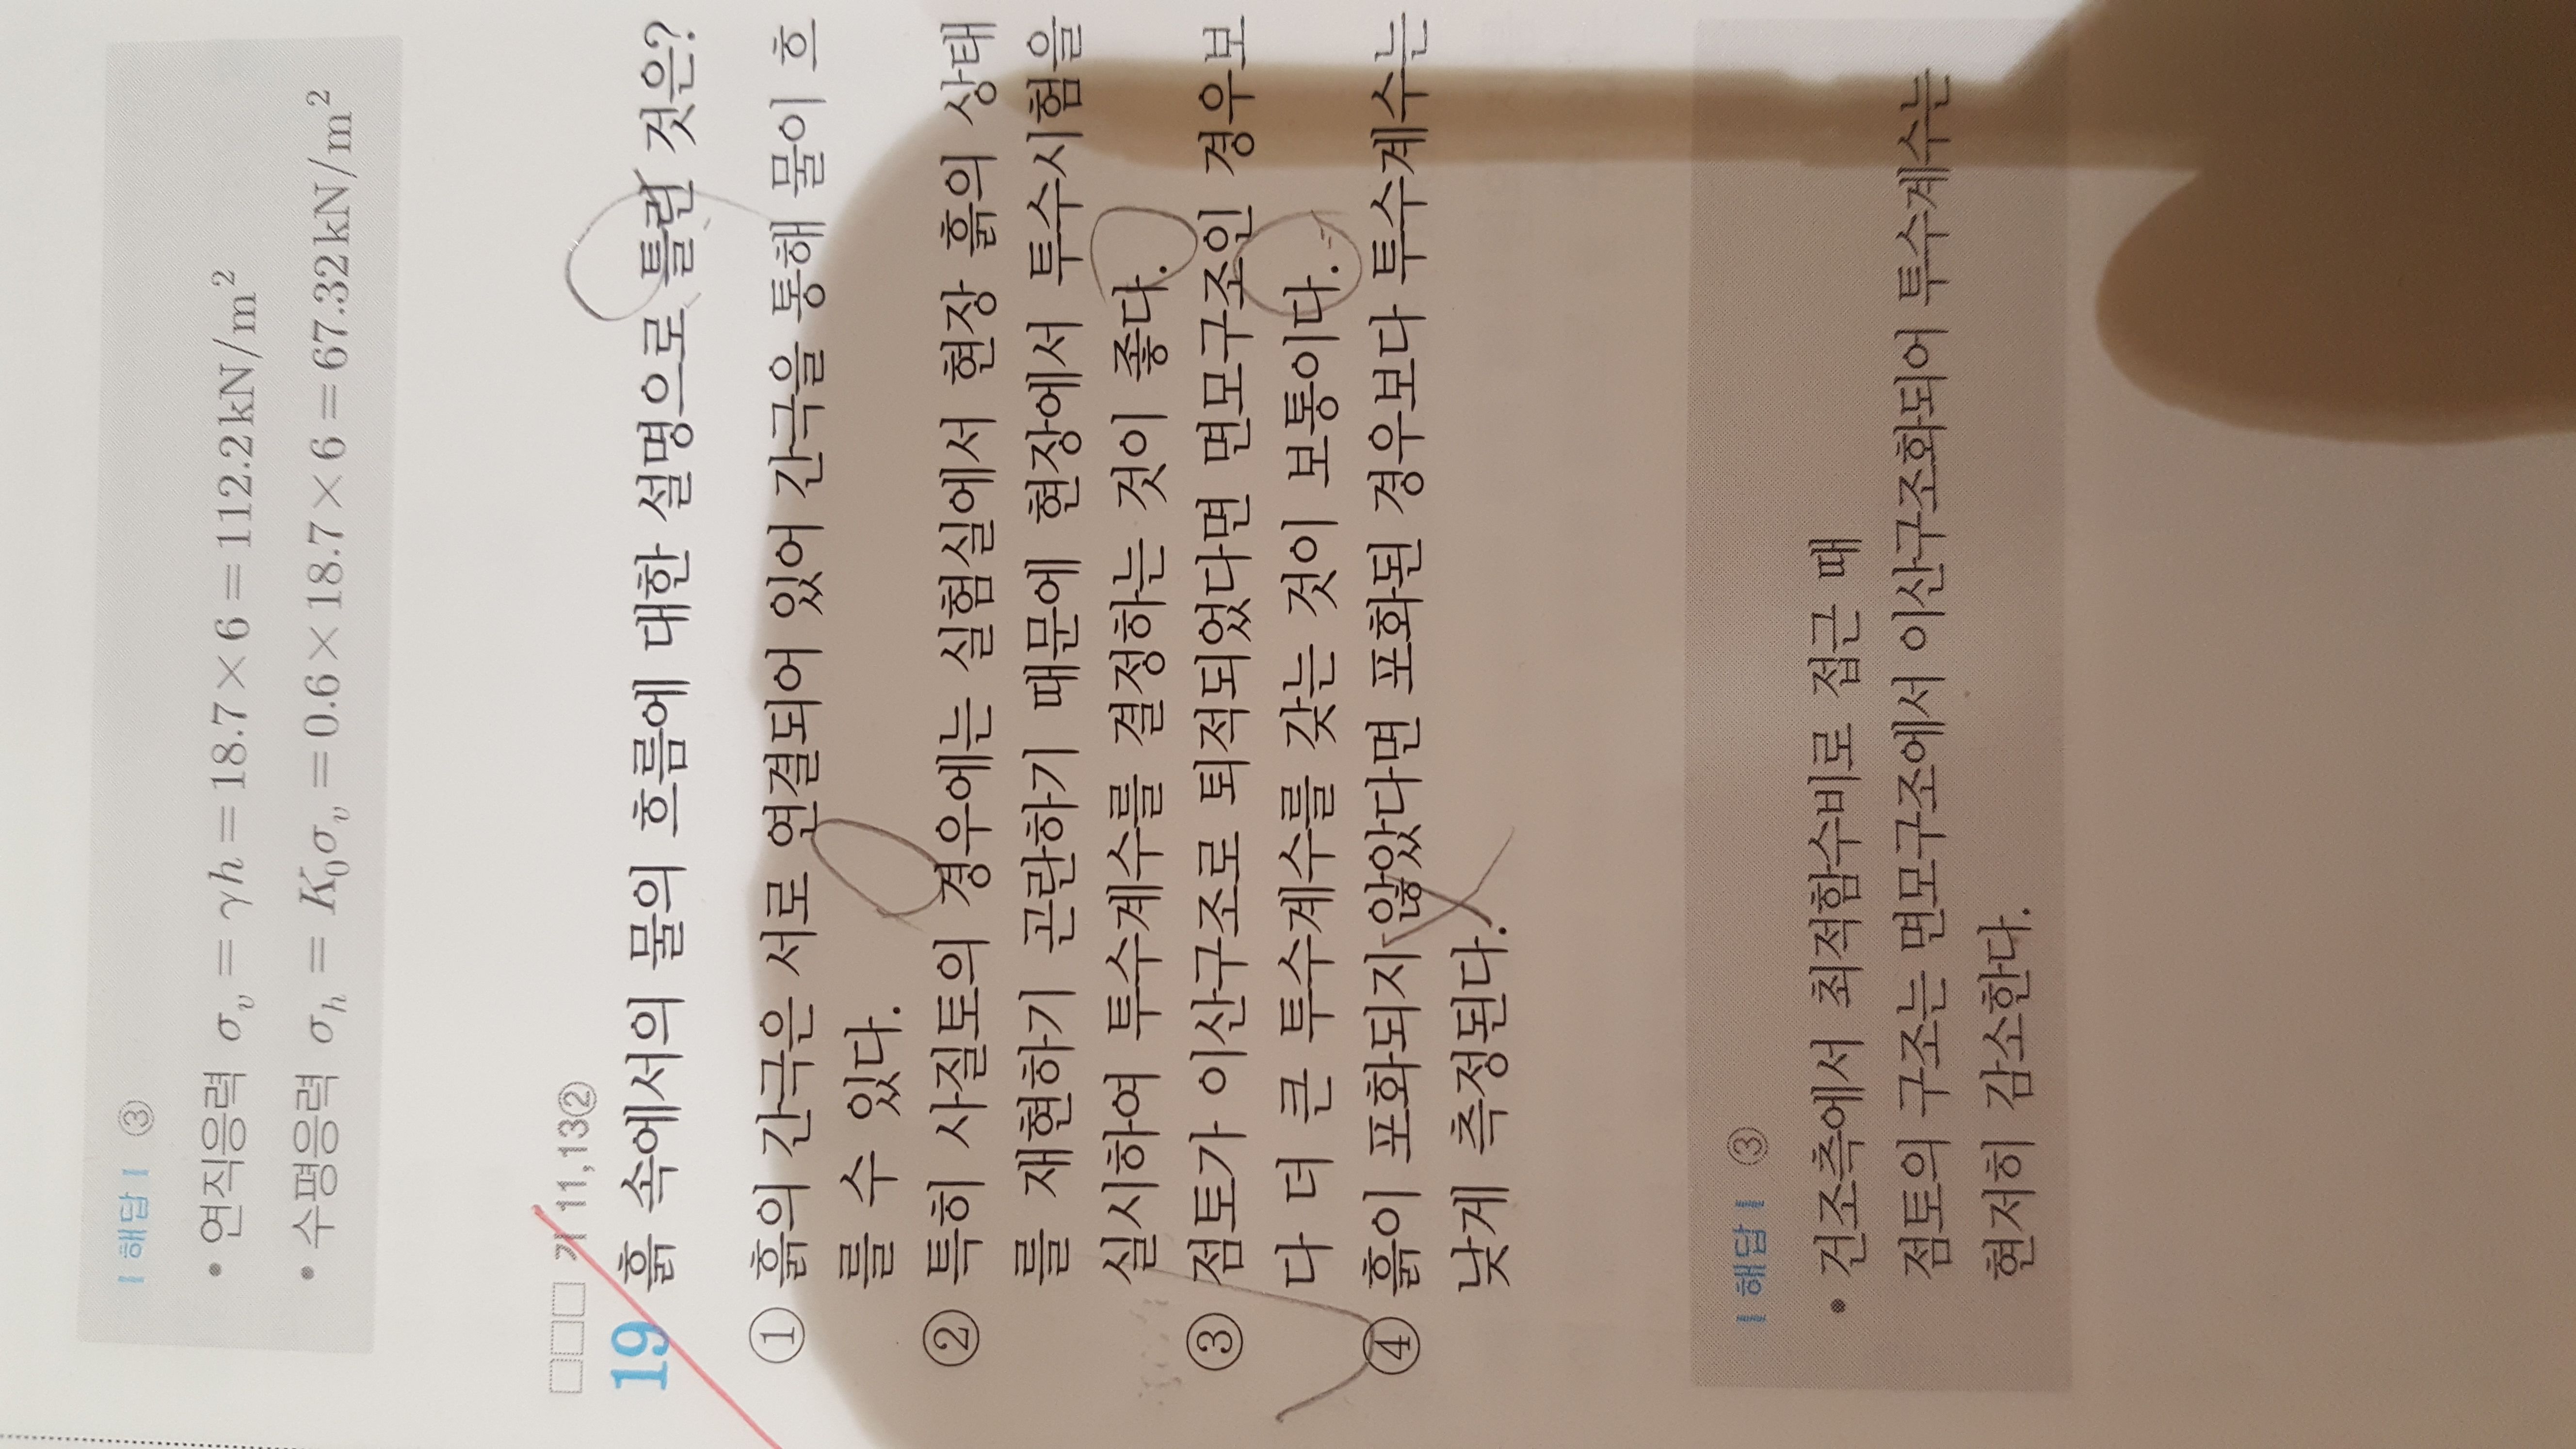 ▎해답▎ ③
• 연직응력 σv = γh = 18.7×6 = 112.2kN/m²
• 수평응력 σh = K₀σv = 0.6×18.7×6 = 67.32kN/m²
□□□ 기 11,13②
19 흙 속에서의 물의 흐름에 대한 설명으로 틀린 것은?
① 흙의 간극은 서로 연결되어 있어 간극을 통해 물이 흐
를 수 있다.
② 특히 사질토의 경우에는 실험실에서 현장 흙의 상태
를 재현하기 곤란하기 때문에 현장에서 투수시험을
실시하여 투수계수를 결정하는 것이 좋다.
③ 점토가 이산구조로 퇴적되었다면 면모구조인 경우보
다 더 큰 투수계수를 갖는 것이 보통이다.
④ 흙이 포화되지 않았다면 포화된 경우보다 투수계수는
낮게 측정된다.
▎해답▎ ③
• 건조측에서 최적함수비로 접근 때
점토의 구조는 면모구조에서 이산구조화되어 투수계수는
현저히 감소한다.